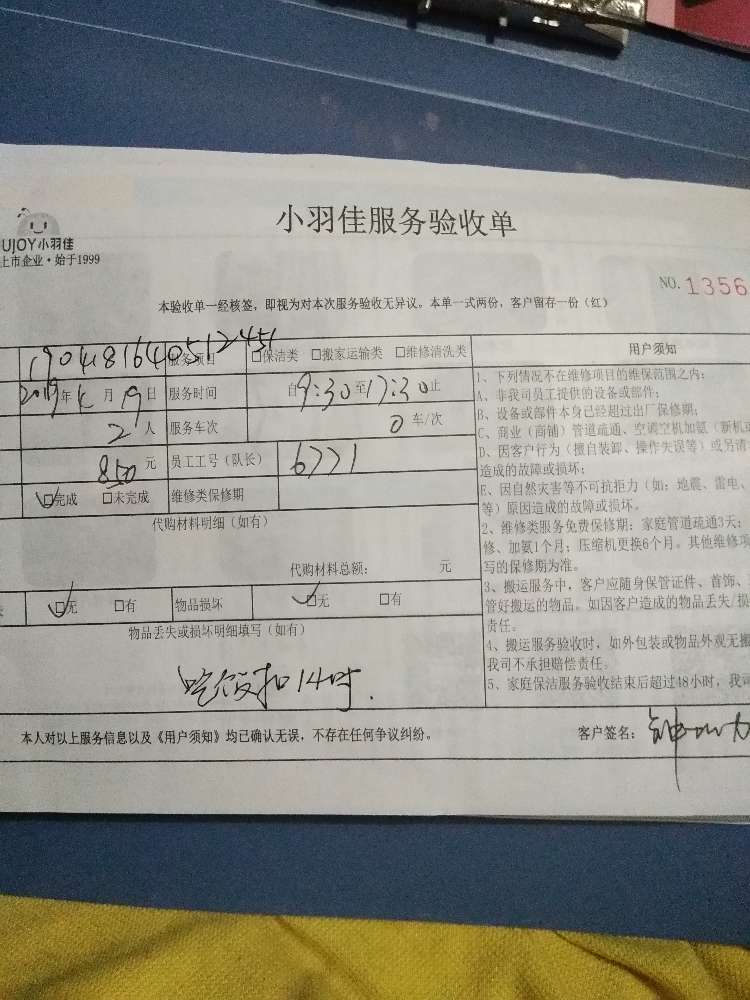 小羽佳服务验收单
UJOY小羽佳
上市企业·始于1999
NO. 1356
本验收单一经核签，即视为对本次服务验收无异议。本单一式两份，客户留存一份（红）
190418164051245 服务项目 □保洁类 □搬家运输类 □维修清洗类
2019年4月19日 服务时间 自9:30至17:30止
2人 服务车次 0车/次
850元 员工工号（队长） 6771
☑完成 □未完成 维修类保修期
代购材料明细（如有）
代购材料总额： 元
☑无 □有 物品损坏 ☑无 □有
物品丢失或损坏明细填写（如有）
吃饭扣14时.
用户须知
1、下列情况不在维修项目的维保范围之内：
A、非我司员工提供的设备或部件；
B、设备或部件本身已经超过出厂保修期；
C、商业（商铺）管道疏通、空调空机加氨（新机或
D、因客户行为（擅自装卸、操作失误等）或另请
造成的故障或损坏；
E、因自然灾害等不可抗拒力（如：地震、雷电、
等）原因造成的故障或损坏。
2、维修类服务免费保修期：家庭管道疏通3天；
修、加氨1个月；压缩机更换6个月。其他维修项
写的保修期为准。
3、搬运服务中，客户应随身保管证件、首饰、
管好搬运的物品。如因客户造成的物品丢失/损
责任。
4、搬运服务验收时，如外包装或物品外观无
我司不承担赔偿责任。
5、家庭保洁服务验收结束后超过48小时，我司
本人对以上服务信息以及《用户须知》均已确认无误，不存在任何争议纠纷。 客户签名：